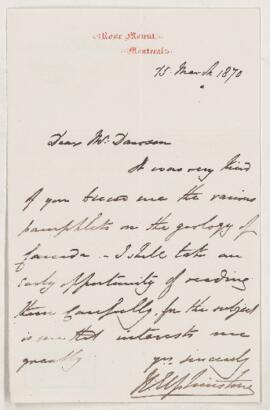 Rose Mount
Montreal
15 March 1870
Dear Mr Dawson
It was very kind
of you to send me the various
pamphlets on the geology of
Canada - I shall take an
early opportunity of reading
them carefully, for the subject
is one that interests me
greatly
yrs sincerely